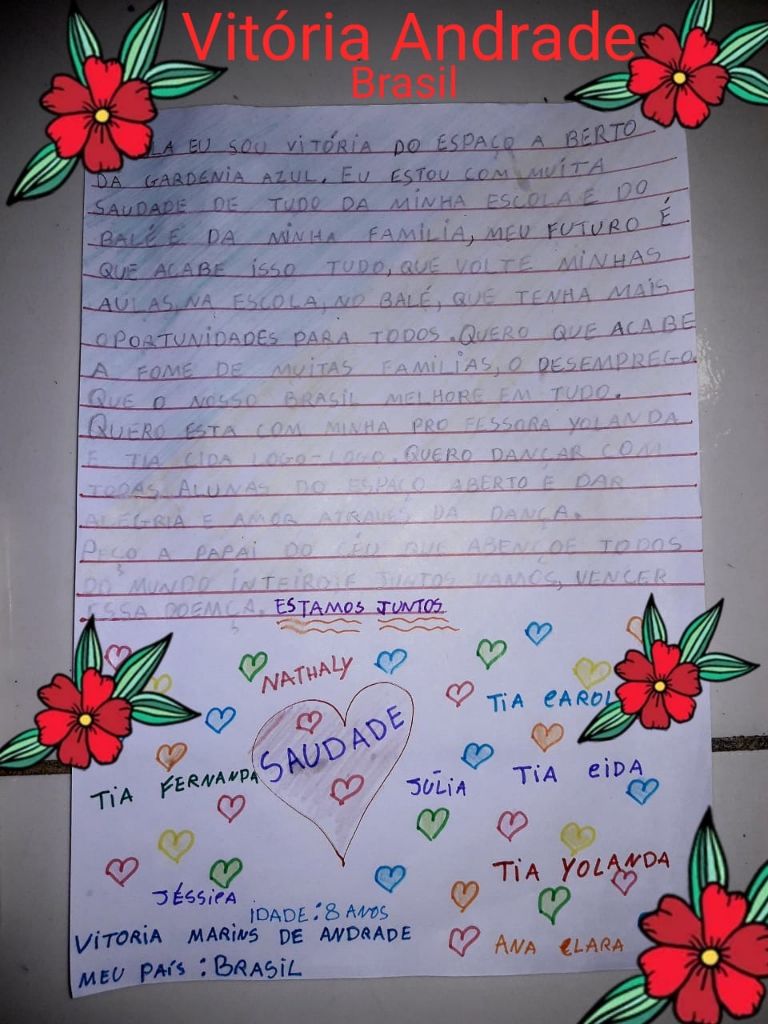 Vitória Andrade
Brasil
LA EU SOU VITÓRIA DO ESPAÇO A BERTO
DA GARDENIA AZUL. EU ESTOU COM MUITA
SAUDADE DE TUDO DA MINHA ESCOLA E DO
BALÉ E DA MINHA FAMÍLIA, MEU FUTURO É
QUE ACABE ISSO TUDO, QUE VOLTE MINHAS
AULAS, NA ESCOLA, NO BALÉ, QUE TENHA MAIS
OPORTUNIDADES PARA TODOS. QUERO QUE ACABE
A FOME DE MUITAS FAMILIAS, O DESEMPREGO.
QUE O NOSSO BRASIL MELHORE EM TUDO.
QUERO ESTA COM MINHA PRO FESSORA YOLANDA
E TIA CIDA LOGO-LOGO. QUERO DANÇAR COM
TODAS ALUNAS DO ESPAÇO ABERTO E DAR
ALEGRIA E AMOR ATRAVES DA DANÇA.
PEÇO A PAPAI DO CÉU QUE ABENÇOE TODOS
DO MUNDO INTEIRO, E JUNTOS VAMOS, VENCER
ESSA DOEMÇA. ESTAMOS JUNTOS
NATHALY
TIA CAROL
SAUDADE
TIA FERNANDA
JÚLIA
TIA CIDA
TIA YOLANDA
JÉSSICA
IDADE: 8 ANOS
VITORIA MARINS DE ANDRADE
ANA CLARA
MEU PAÍS: BRASIL